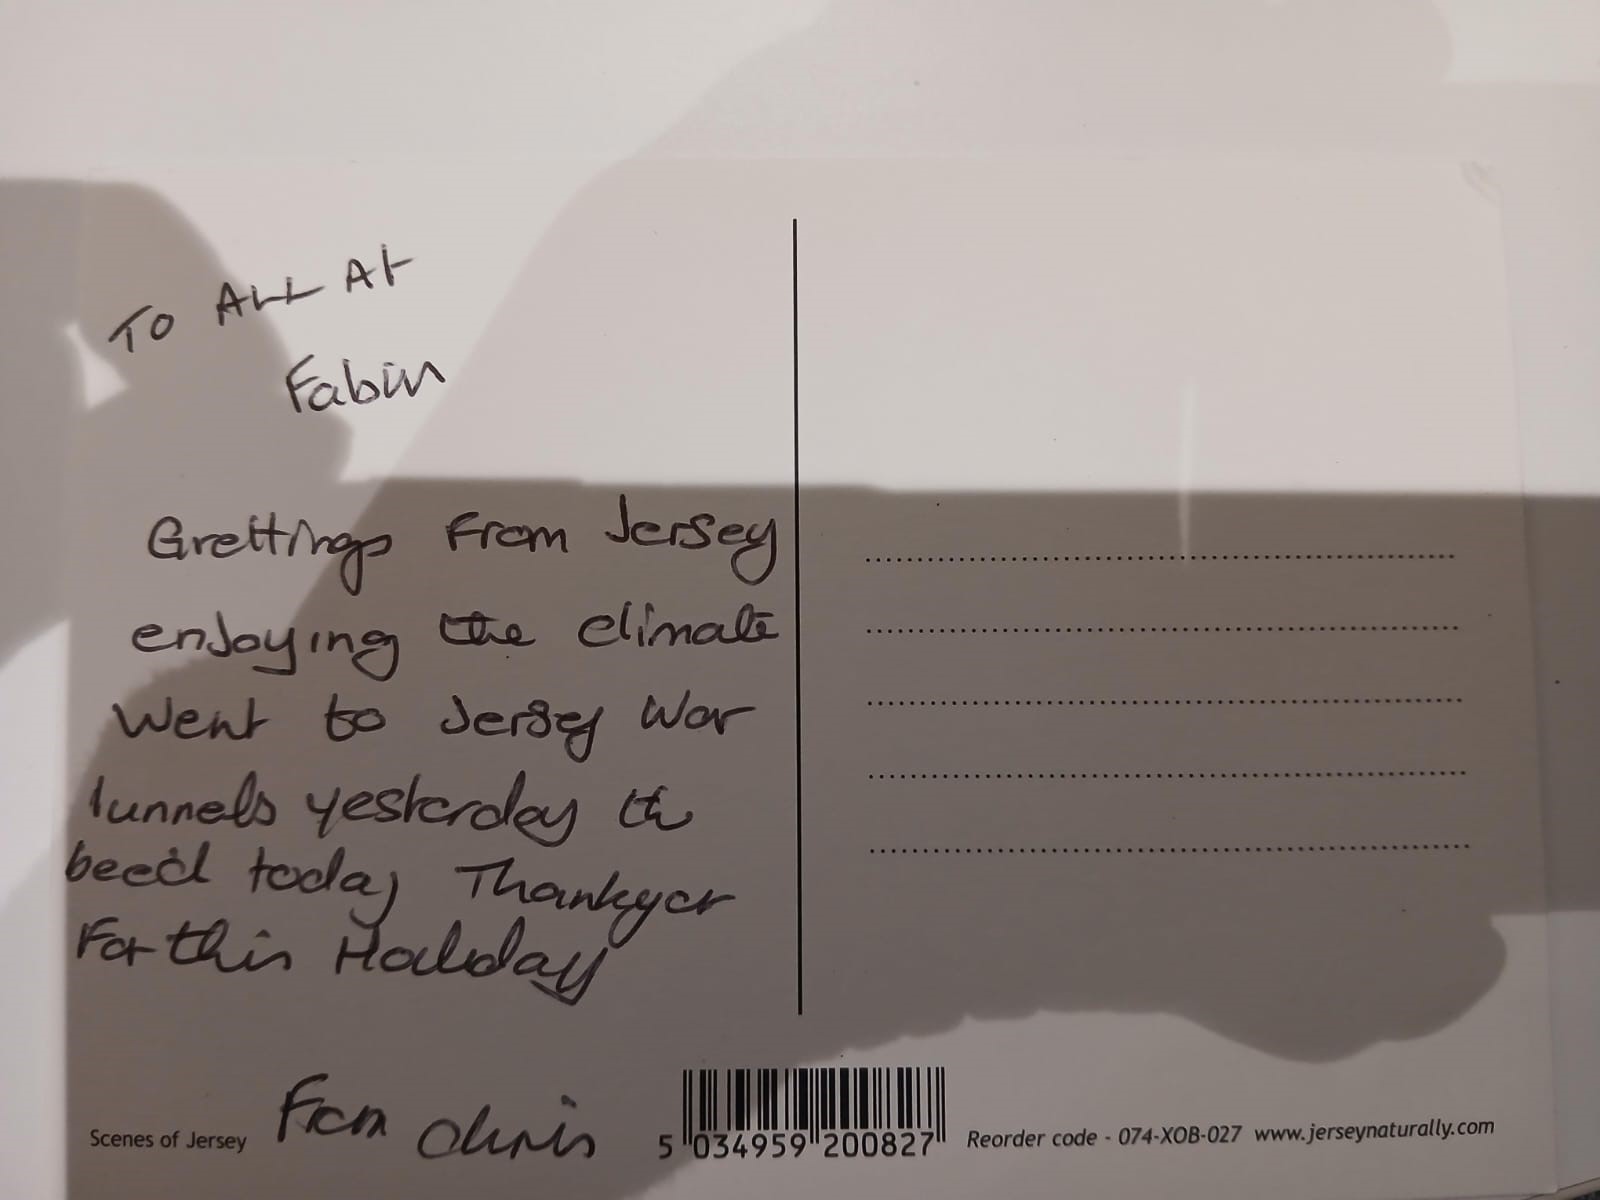 TO ALL At
Fabin
Grettings From Jersey
enjoying the climate
Went to Jersey War
tunnels yesterday the
beech today Thankyor
For this Holiday
From Chris
Scenes of Jersey
5 034959 200827
Reorder code - 074-XOB-027 www.jerseynaturally.com